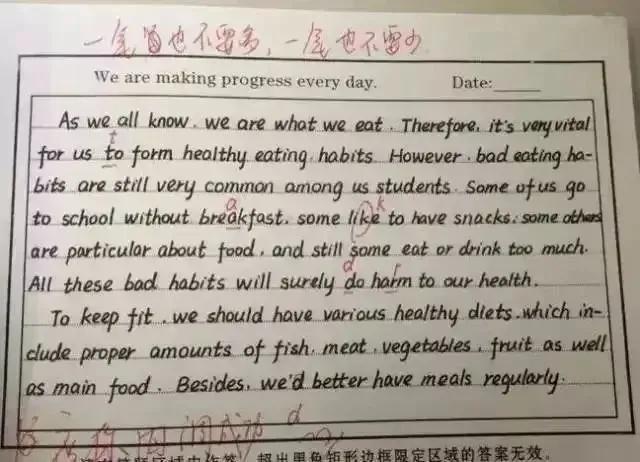 一笔画也不要多，一笔也不要少
We are making progress every day. Date:
As we all know, we are what we eat. Therefore, it's very vital
t
for us to form healthy eating habits. However, bad eating ha-
bits are still very common among us students. Some of us go
a k
to school without breakfast, some like to have snacks; some others
are particular about food, and still some eat or drink too much.
d r
All these bad habits will surely do harm to our health.
To keep fit, we should have various healthy diets, which in-
clude proper amounts of fish, meat, vegetables, fruit as well
as main food. Besides, we'd better have meals regularly.
成功 d
超出黑色矩形边框限定区域的答案无效。